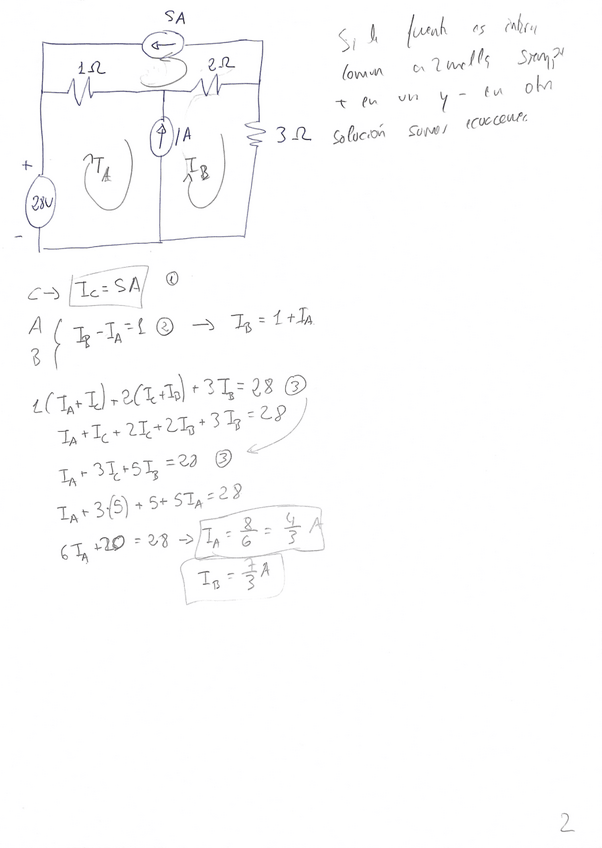 5A
1Ω
2Ω
1A
3Ω
I_A
I_B
+
28V
-
Si la fuente es interna
común a 2 mallas siempre
+ en un y - en otra
solución sumar ecuaciones
C→ I_C = 5A ①
A
B { I_B - I_A = 1 ② → I_B = 1 + I_A
1(I_A + I_C) + 2(I_C + I_B) + 3I_B = 28 ③
I_A + I_C + 2I_C + 2I_B + 3I_B = 28
I_A + 3I_C + 5I_B = 28 ③
I_A + 3·(5) + 5 + 5I_A = 28
6I_A + 20 = 28 → I_A = 8/6 = 4/3 A
I_B = 7/3 A
2